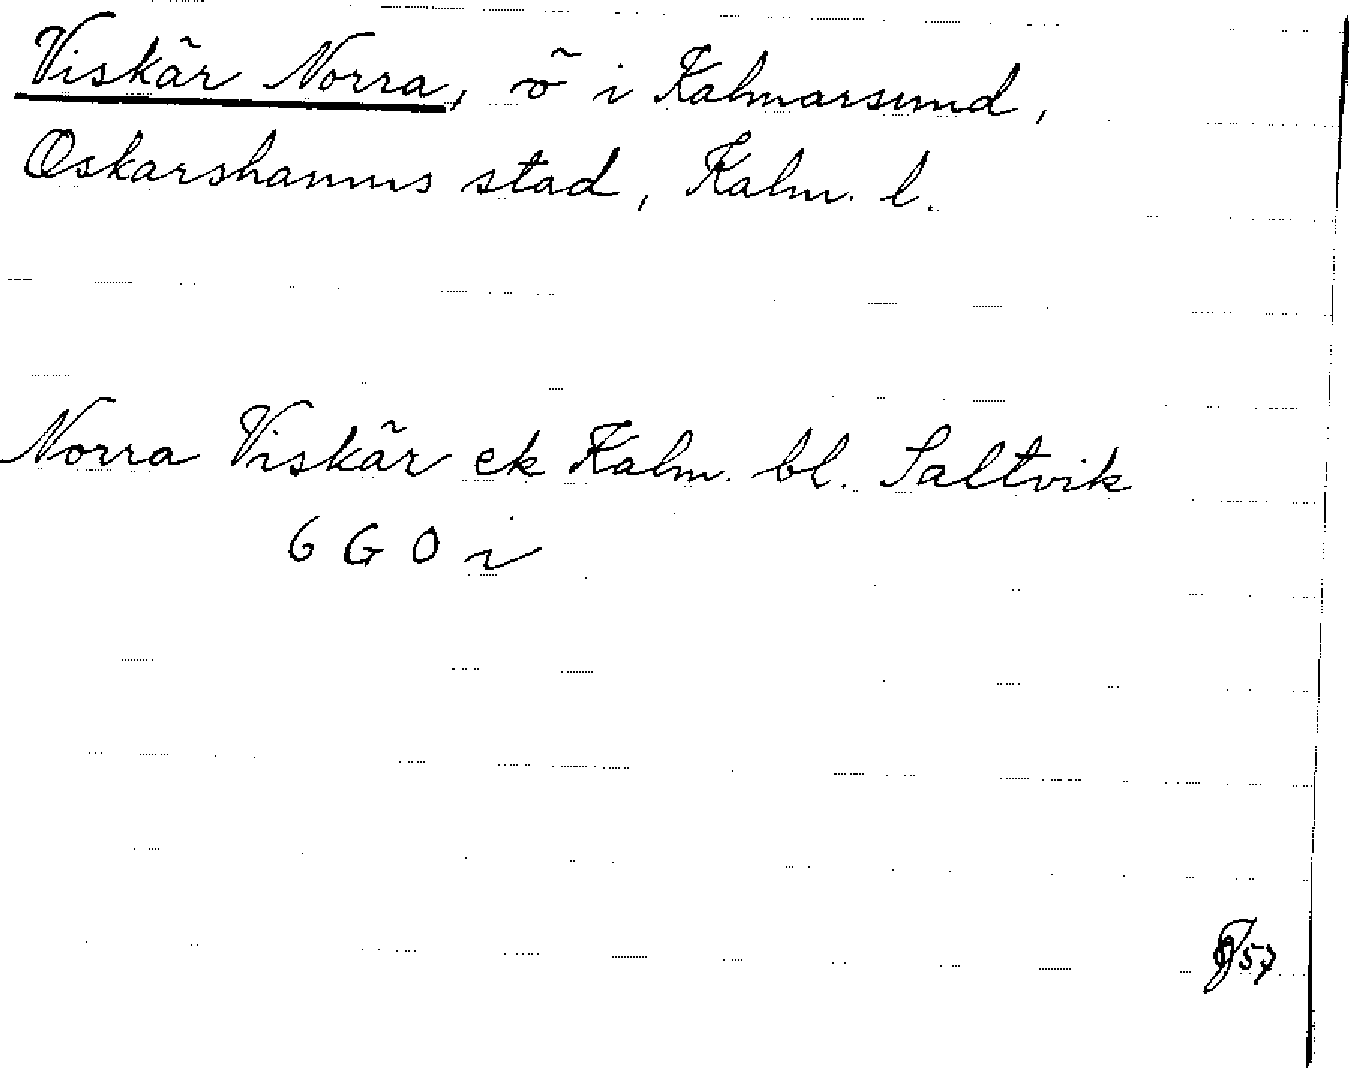 Viskär Norra, ö i Kalmarsund,
Oskarshamns stad, Kalm. l.
Norra Viskär ek Kalm. bl. Saltvik
6 G 0 i
57